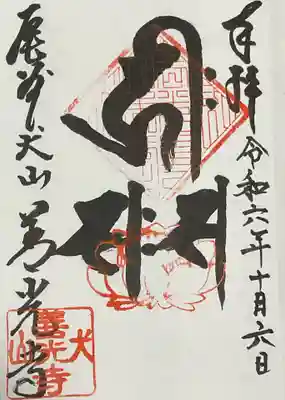 奉拝
令和六年十月六日
尾州犬山
善光寺
犬山
善光寺